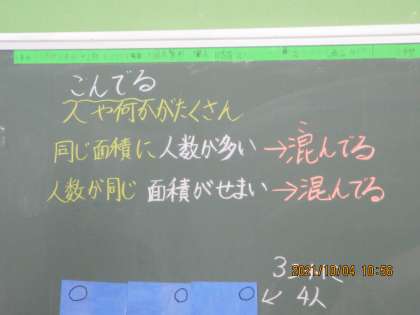 こんでる
人や何かがたくさん
同じ面積に人数が多い→混んでる
人数が同じ 面積がせまい→混んでる
2021/10/04 10:56
4人